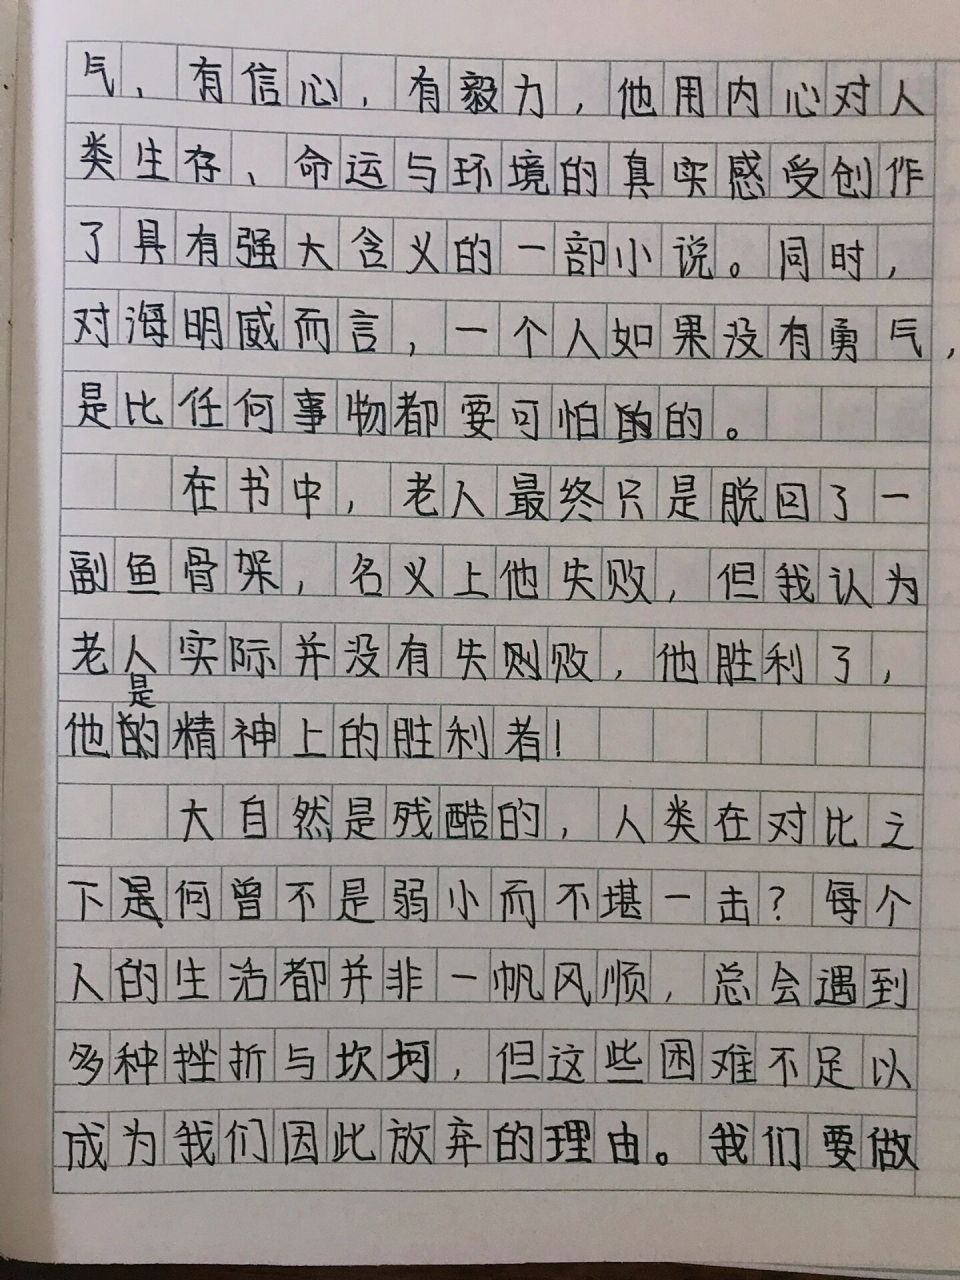 气，有信心，有毅力，他用内心对人
类生存、命运与环境的真实感受创作
了具有强大含义的一部小说。同时，
对海明威而言，一个人如果没有勇气，
是比任何事物都要可怕的的。
在书中，老人最终只是脱回了一
副鱼骨架，名义上他失败，但我认为
老人实际并没有失则败，他胜利了，
他是精神上的胜利者！
大自然是残酷的，人类在对比之
下是何曾不是弱小而不堪一击？每个
人的生活都并非一帆风顺，总会遇到
多种挫折与坎坷，但这些困难不足以
成为我们因此放弃的理由。我们要做